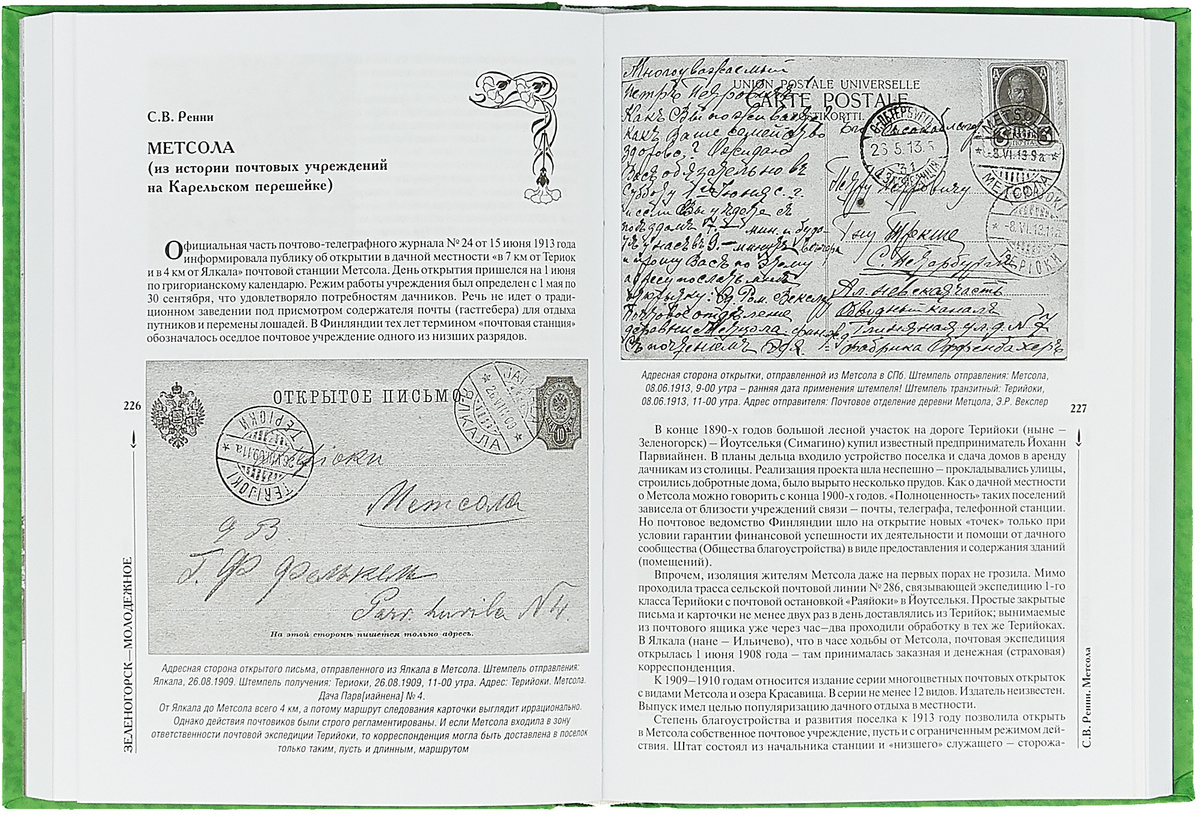 С.В. Ренни
МЕТСОЛА
(из истории почтовых учреждений
на Карельском перешейке)
Официальная часть почтово-телеграфного журнала № 24 от 15 июня 1913 года
информировала публику об открытии в дачной местности «в 7 км от Териок
и в 4 км от Ялкала» почтовой станции Метсола. День открытия пришелся на 1 июня
по григорианскому календарю. Режим работы учреждения был определен с 1 мая по
30 сентября, что удовлетворяло потребностям дачников. Речь не идет о тради-
ционном заведении под присмотром содержателя почты (гастгебера) для отдыха
путников и перемены лошадей. В Финляндии тех лет термином «почтовая станция»
обозначалось оседлое почтовое учреждение одного из низших разрядов.
226
ЗЕЛЕНОГОРСК—МОЛОДЕЖНОЕ
ОТКРЫТОЕ ПИСЬМО
ЯЛКАЛА
10
ТЕРІОКИ
TERIJOKI
Теріоки
Метсола
Г. Ф. Фелькель
Parv. huvila № 4.
На этой сторонѣ пишется только адресъ.
Адресная сторона открытого письма, отправленного из Ялкала в Метсола. Штемпель отправления:
Ялкала, 26.08.1909. Штемпель получения: Териоки, 26.08.1909, 11-00 утра. Адрес: Терийоки. Метсола.
Дача Парв[иайнена] № 4.
От Ялкала до Метсола всего 4 км, а потому маршрут следования карточки выглядит иррационально.
Однако действия почтовиков были строго регламентированы. И если Метсола входила в зону
ответственности почтовой экспедиции Терийоки, то корреспонденция могла быть доставлена в поселок
только таким, пусть и длинным, маршрутом
UNION POSTALE UNIVERSELLE
CARTE POSTALE
POSTIKORTTI.
Многоуважаемый
Петръ Петровичъ
Какъ Вы поживаете
какъ Ваше семейство
здорово?
С.ПЕТЕРБУРГЪ
26.5.13
METSOLA
-8.VI.13.9а
МЕТСОЛА
-8.VI.13.11
ТЕРІОКИ
Петру Петровичу
С. Петербургъ
Ал. Невская часть
Обводный каналъ
Адресная сторона открытки, отправленной из Метсола в СПб. Штемпель отправления: Метсола,
08.06.1913, 9-00 утра – ранняя дата применения штемпеля! Штемпель транзитный: Терийоки,
08.06.1913, 11-00 утра. Адрес отправителя: Почтовое отделение деревни Метцола, Э.Р. Векслер
227
В конце 1890-х годов большой лесной участок на дороге Терийоки (ныне –
Зеленогорск) – Йоутселькя (Симагино) купил известный предприниматель Йоханн
Парвиайнен. В планы дельца входило устройство поселка и сдача домов в аренду
дачникам из столицы. Реализация проекта шла неспешно – прокладывались улицы,
строились добротные дома, было вырыто несколько прудов. Как о дачной местности
о Метсола можно говорить с конца 1900-х годов. «Полноценность» таких поселений
зависела от близости учреждений связи – почты, телеграфа, телефонной станции.
Но почтовое ведомство Финляндии шло на открытие новых «точек» только при
условии гарантии финансовой успешности их деятельности и помощи от дачного
сообщества (Общества благоустройства) в виде предоставления и содержания зданий
(помещений).
Впрочем, изоляция жителям Метсола даже на первых порах не грозила. Мимо
проходила трасса сельской почтовой линии № 286, связывающей экспедицию 1-го
класса Терийоки с почтовой остановкой «Раяйоки» в Йоутселькя. Простые закрытые
письма и карточки не менее двух раз в день доставлялись из Терийок; вынимаемые
из почтового ящика уже через час–два проходили обработку в тех же Терийоках.
В Ялкала (нане – Ильичево), что в часе ходьбы от Метсола, почтовая экспедиция
открылась 1 июня 1908 года – там принималась заказная и денежная (страховая)
корреспонденция.
К 1909–1910 годам относится издание серии многоцветных почтовых открыток
с видами Метсола и озера Красавица. В серии не менее 12 видов. Издатель неизвестен.
Выпуск имел целью популяризацию дачного отдыха в местности.
Степень благоустройства и развития поселка к 1913 году позволила открыть
в Метсола собственное почтовое учреждение, пусть и с ограниченным режимом дей-
ствия. Штат состоял из начальника станции и «низшего» служащего – сторожа-
С.В. Ренни. Метсола